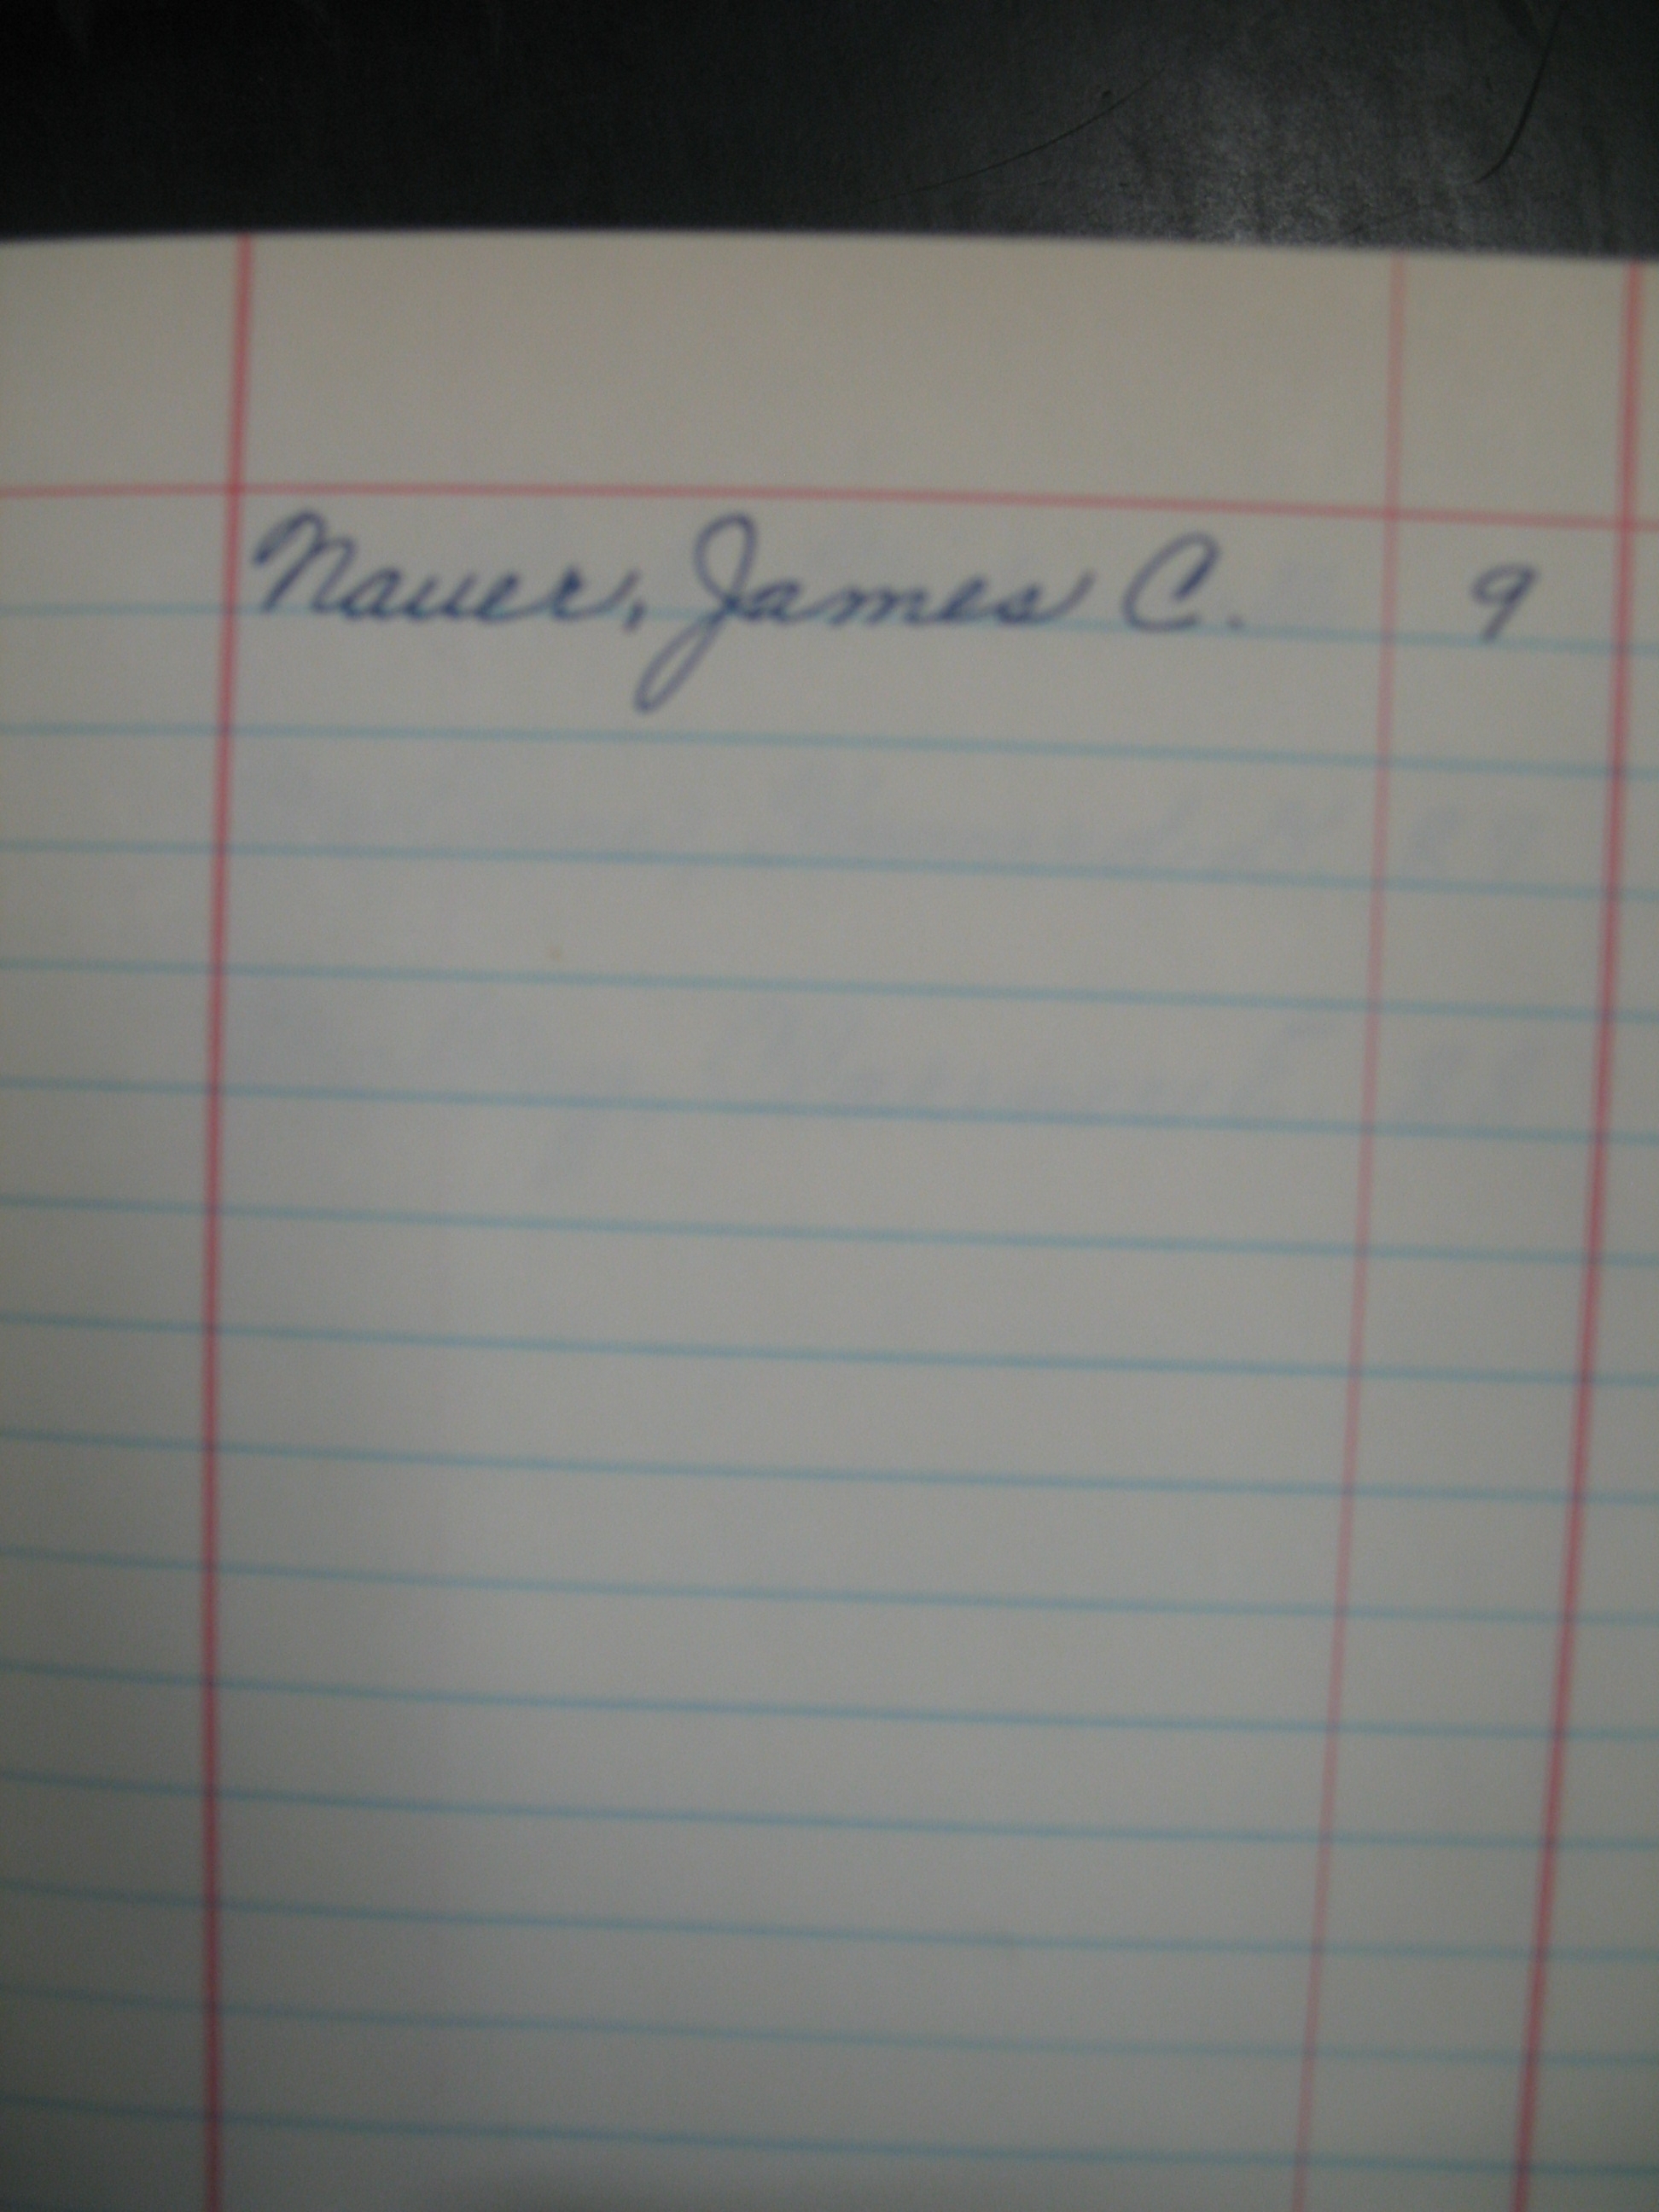 Nauer, James C. 9